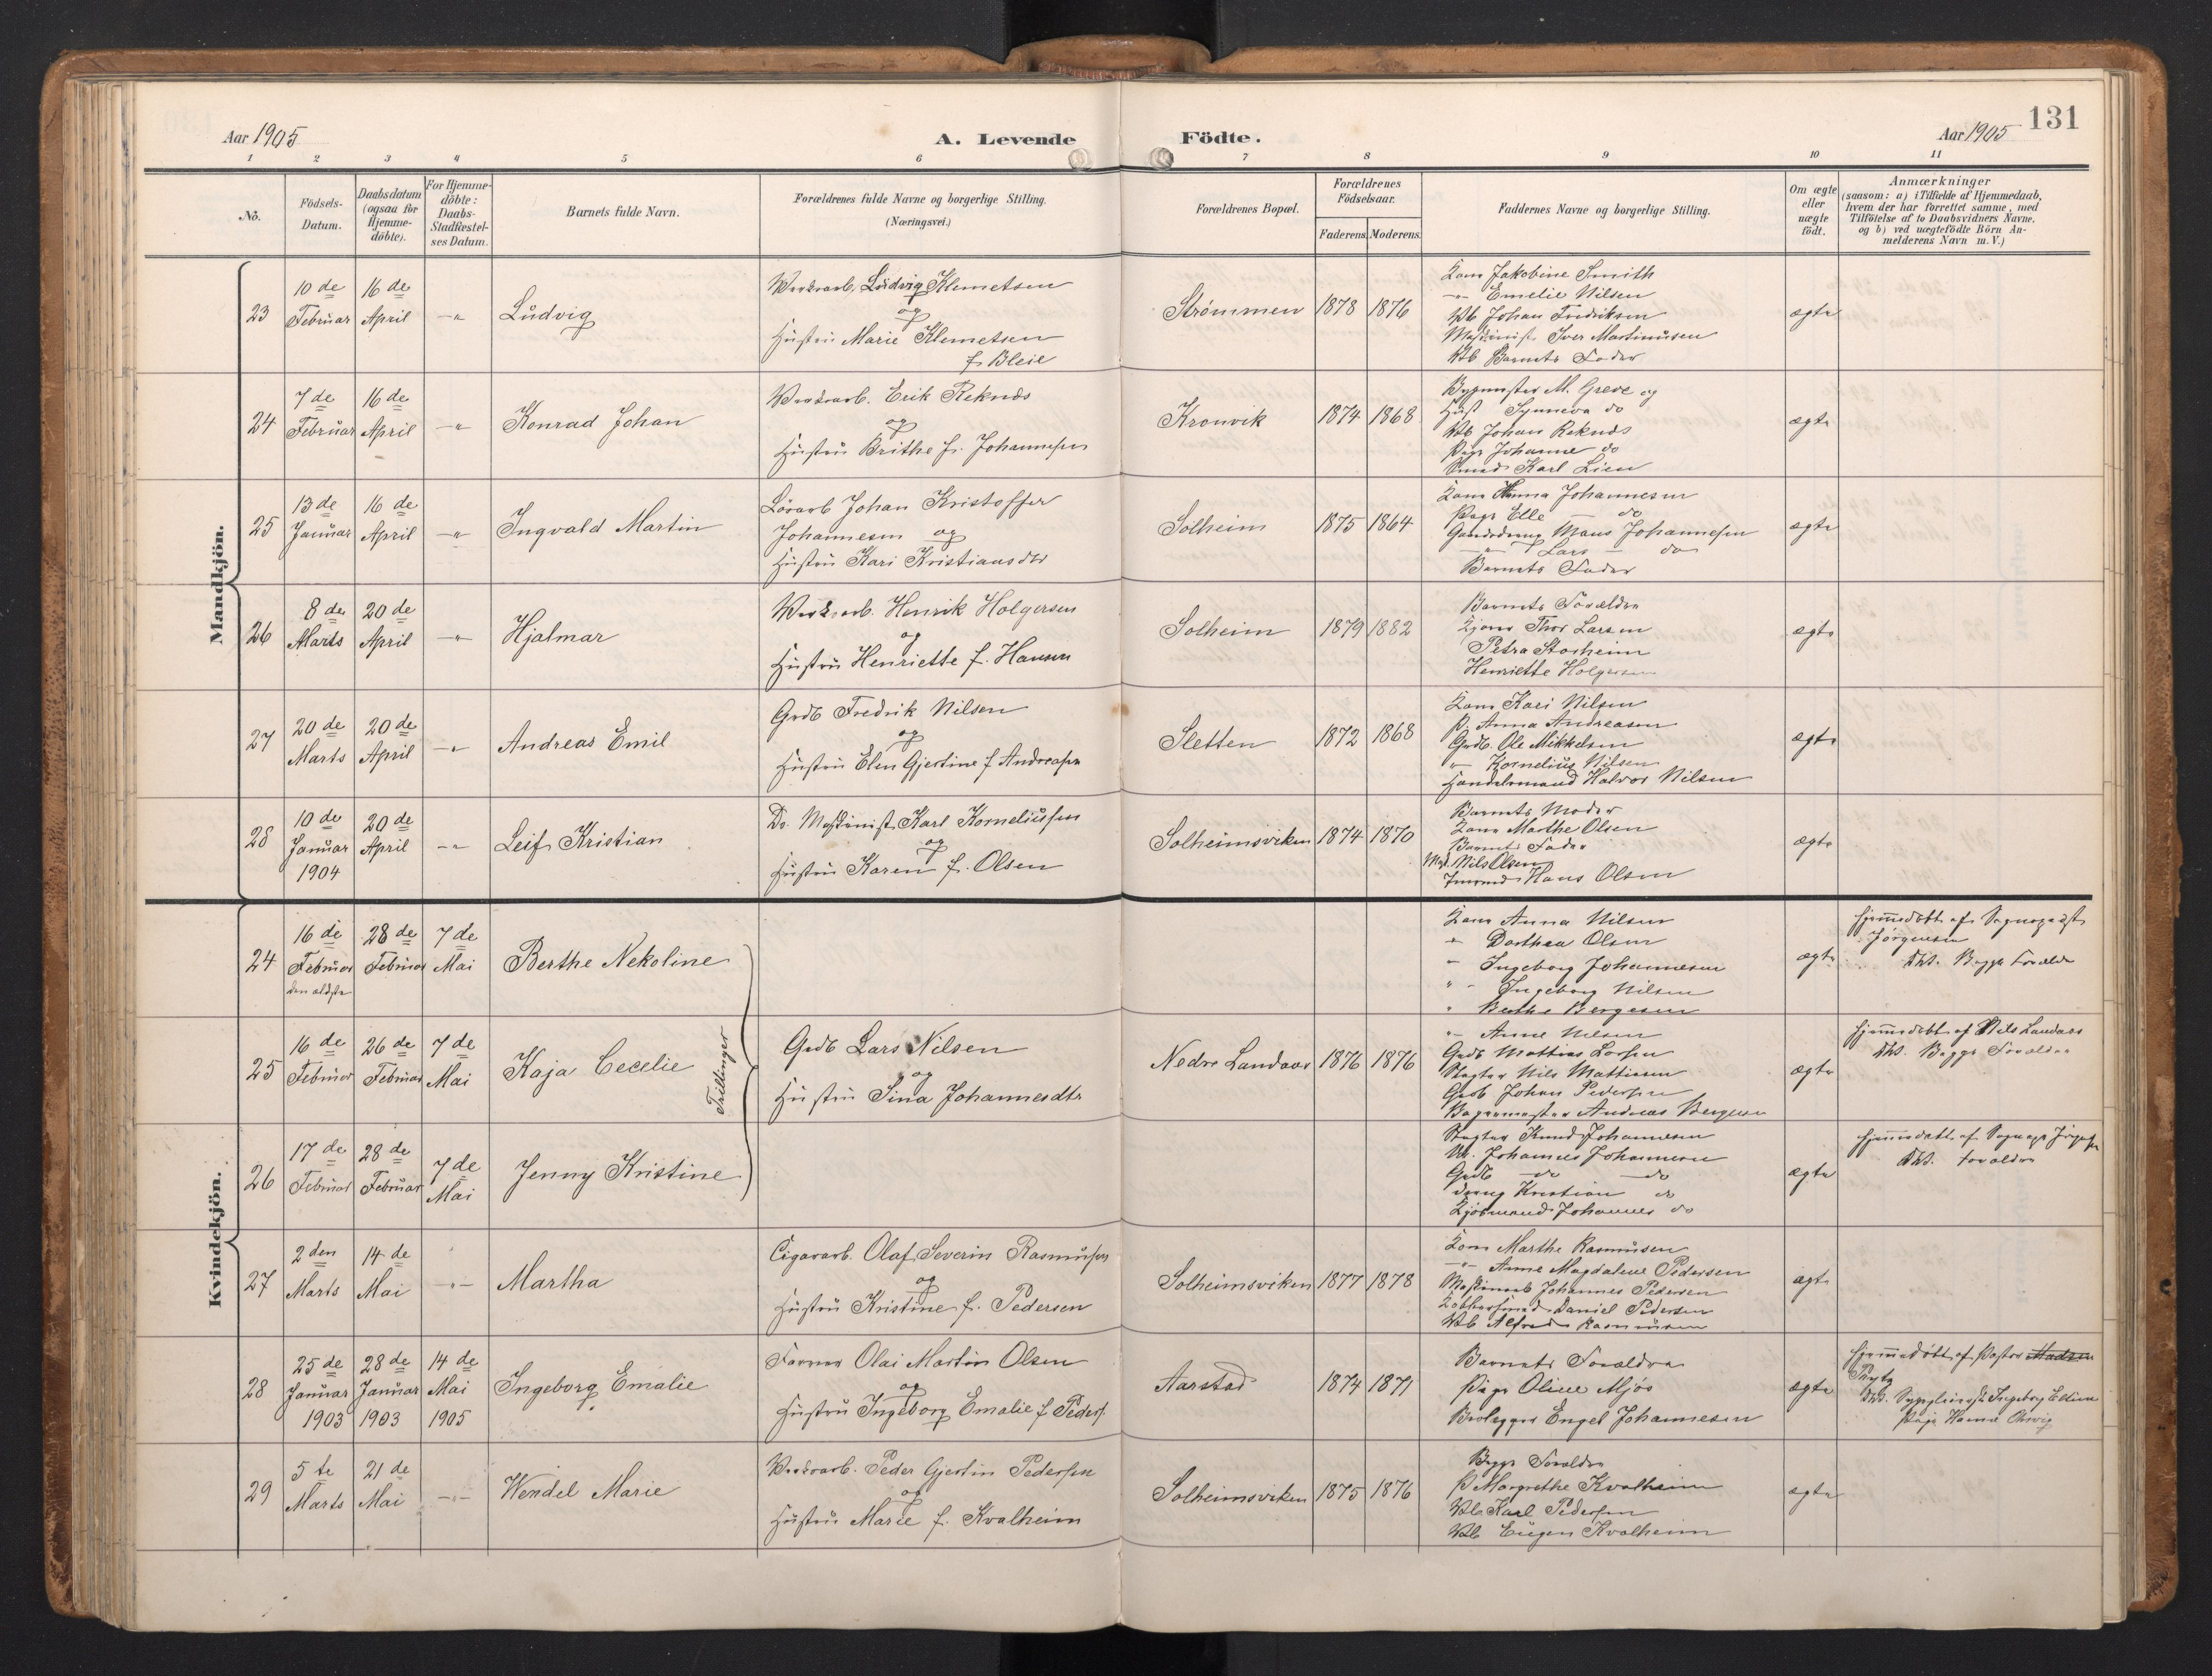 Aar 1905
A. Levende Födte.
Aar 1905 131
1 2 3 4 5 6 7 8 9 10 11
Nö.
Födsels-
Datum.
Daabsdatum
(ogsaa för
Hjemme-
döbte).
For Hjemme-
döbte:
Daabs-
Stadfæstel-
ses Datum.
Barnets fulde Navn.
Forældrenes fulde Navne og borgerlige Stilling.
(Næringsvei.)
Forældrenes Bopæl.
Forældrenes
Födselsaar.
Faderens Moderens
Faddernes Navne og borgerlige Stilling.
Om ægte
eller
uægte
födt.
Anmærkninger
(saasom: a) i Tilfælde af Hjemmedaab,
hvem der har forrettet samme, med
Tilföielse af to Daabsvidners Navne,
og b) ved uægtefödte Börn An-
melderens Navn m. V.)
Mandkjön.
23
10 de
Februar
16 de
April
-"-
Ludvig
Ludvig Klemetsen
og
Hustru Marie Klemetsen
f. Bleie
Strømmen
1878 1876
Kone Jakobine Smith
-"- Emelie Nilsen
Vb Johan Fredriksen
Maskinist Iver Martinusen
Vb Barnets Fader
ægte
24
7 de
Februar
16 de
April
-"-
Konrad Johan
Erik Reknes
og
Hustru Brithe f. Johannesen
Kronvik
1874 1868
Bygmester M. Greve og
Hust Synneva do
Vb Johan Reknes
Pige Johanne do
Smed Karl Lien
ægte
25
13 de
Januar
16 de
April
-"-
Ingvald Martin
Johan Kristoffer
Johannesen og
Hustru Kari Kristiansdtr
Solheim
1875 1864
Kone Johannesen
Pige Elle - do
Mons Johannesen
-"- Lars - do
Barnets Fader
ægte
26
8 de
Marts
20 de
April
-"-
Hjalmar
Henrik Holgersen
og
Hustru Henriette f. Hansen
Solheim
1879 1882
Barnets Forældre
Thor Larsen
Petra Storheim
Henriette Holgersen
ægte
27
20 de
Marts
20 de
April
-"-
Andreas Emil
Grdb Fredrik Nilsen
og
Hustru Elen Gjertine f Andreasen
Sletten
1872 1868
Kone Kari Nilsen
P. Anna Andreasen
Grdb. Ole Mikkelsen
-"- Kornelius Nilsen
Handelsmand Halvor Nilsen
ægte
28
10 de
Januar
1904
20 de
April
-"-
Leif Kristian
Maskinist Karl Korneliussen
og
Hustru Karen f. Olsen
Solheimsviken
1874 1870
Barnets Moder
Kone Marthe Olsen
Barnets Fader
Nils Olsen
Hans Olsen
ægte
Kvindekjön.
24
16 de
Februar
den ældste
28 de
Februar
7 de
Mai
Berthe Nekoline
Kone Anna Nilsen
" Dorthea Olsen
" Ingeborg Johannesen
" Ingeborg Nilsen
" Berthe Bergesen
ægte
Hjemmedøbt af Sogneprest
Jørgensen
Dbs. Begge Forældre
Trillinger
25
16 de
Februar
26 de
Februar
7 de
Mai
Kaja Cecelie
Grdb Lars Nilsen
og
Hustru Sina Johannesdtr
Nedre Landaas
1876 1876
" Anne Nilsen
Grdb Mathias Larsen
Slagter Nils Mathiesen
Grdb Johan Pedersen
Bagermester Andreas Bergesen
ægte
Hjemmedøbt af Nils Landaas
Dbs. Begge Forældre
26
17 de
Februar
28 de
Februar
7 de
Mai
Jenny Kristine
Slagter Knud Johannesen
Johannes Johannesen
Grdb do do
dreng Kristian do
Johannes do
ægte
Hjemmedøbt af Sognepr Jörgensen
Dbs. Forældre
27
2 den
Marts
14 de
Mai
-"-
Martha
Cigararb. Olaf Severin Rasmussen
og
Hustru Kristine f. Pedersen
Solheimsviken
1877 1878
Kone Marthe Rasmussen
-"- Anne Magdalene Pedersen
Johannes Pedersen
Kobbersmed Daniel Pedersen
Vb Alfred Rasmussen
ægte
28
25 de
Januar
1903
28 de
Januar
1903
14 de
Mai
1905
Ingeborg Emalie
Farver Olai Martin Olsen
og
Hustru Ingeborg Emalie f Peders.
Aarstad
1874 1871
Barnets Forældre
Pige Oline Mjøs
Brolægger Engel Johannesen
ægte
Hjemmedøbt af Pastor Madsen
Dbs. Ingeborg
Pige Hanna
29
5 te
Marts
21 de
Mai
-"-
Wendel Marie
Peder Gjertin Pedersen
og
Hustru Marie f. Kvalheim
Solheimsviken
1875 1876
Begge Forældre
P Margrethe Kvalheim
Vb Karl Pedersen
Vb Eugen Kvalheim
ægte